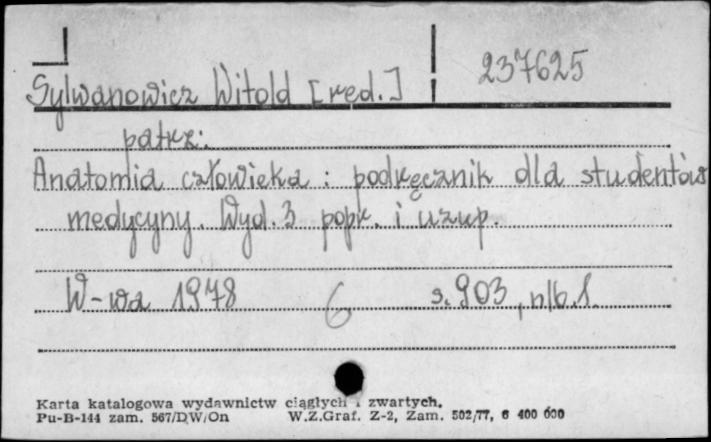 237625
Sylwanowicz Witold [red.]
patrz:
Anatomia człowieka : podręcznik dla studentów
medycyny. Wyd. 3 popr. i uzup.
W-wa 1978 6 s. 903, nlb. 1.
Karta katalogowa wydawnictw ciągłych i zwartych.
Pu-B-144 zam. 567/DW/On W.Z.Graf. Z-2, Zam. 502/77, 6 400 600